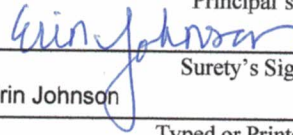 Principal's
Erin Johnson
Surety's Sig
rin Johnson
Typed or Print